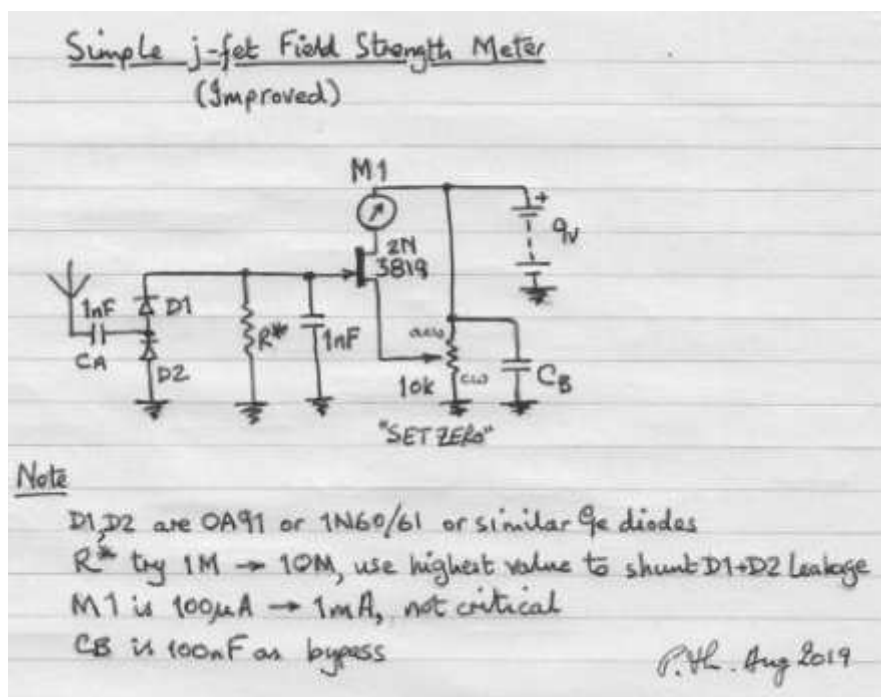 Simple j-fet Field Strength Meter
(Improved)
M1
2N
3819
9v
+
1nF
D1
CA
D2
R*
1nF
acw
10k
cw
CB
"SET ZERO"
Note
D1,D2 are OA91 or 1N60/61 or similar Ge diodes
R* try 1M → 10M, use highest value to shunt D1+D2 leakage
M1 is 100µA → 1mA, not critical
CB is 100nF as bypass
Aug 2019